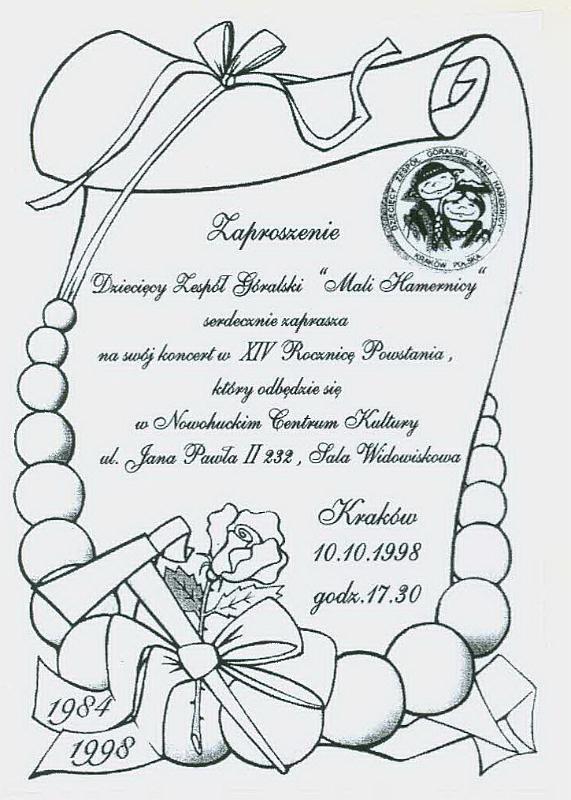 DZIECIĘCY ZESPÓŁ GÓRALSKI "MALI HAMERNICY"
KRAKÓW POLSKA
Zaproszenie
Dziecięcy Zespół Góralski "Mali Hamernicy"
serdecznie zaprasza
na swój koncert w XIV Rocznicę Powstania,
który odbędzie się
w Nowohuckim Centrum Kultury
ul. Jana Pawła II 232, Sala Widowiskowa
Kraków
10.10.1998
godz.17.30
1984
1998